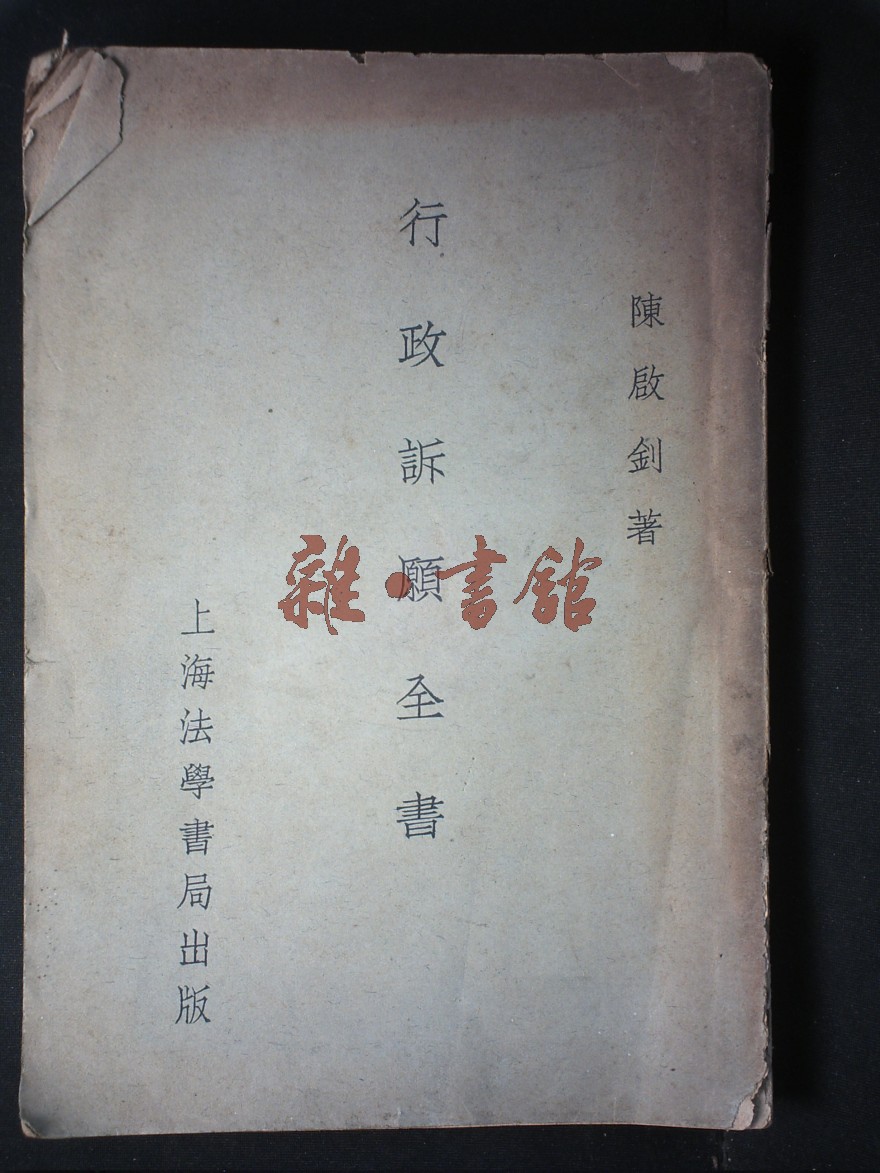 陳啟釗著
行政訴願全書
上海法學書局出版
雜·書館